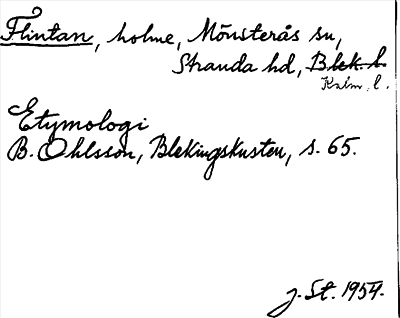 Flintan, holme, Mönsterås sn,
Stranda hd, Blek. l.
Kalm. l.
Etymologi
B. Ohlsson, Blekingskusten, s. 65.
J. St. 1954.